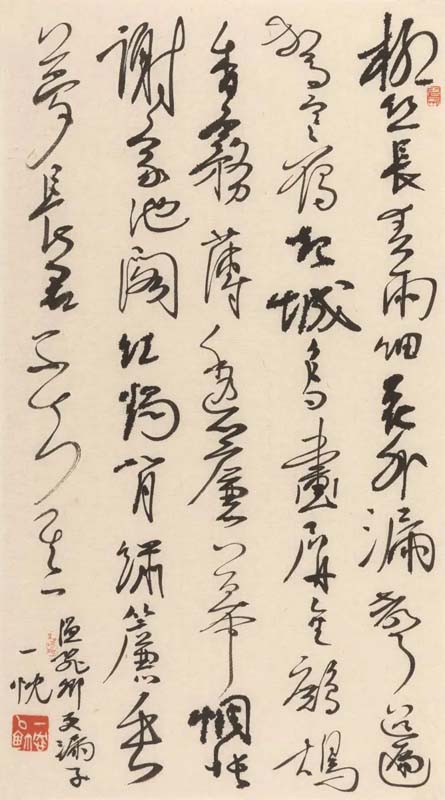 柳丝長春雨细花外漏聲迢遞
驚塞雁起城烏畫屏金鷓鴣
香霧薄透簾幕惆悵
謝家池閣红燭背繡簾垂
夢長君不知其一
溫飛卿更漏子
一忱